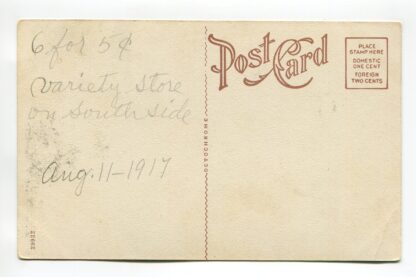 6 for 5¢
variety store
on south side
Aug. 11-1917
Post Card
PLACE
STAMP HERE
DOMESTIC
ONE CENT
FOREIGN
TWO CENTS
OCTOCHROME